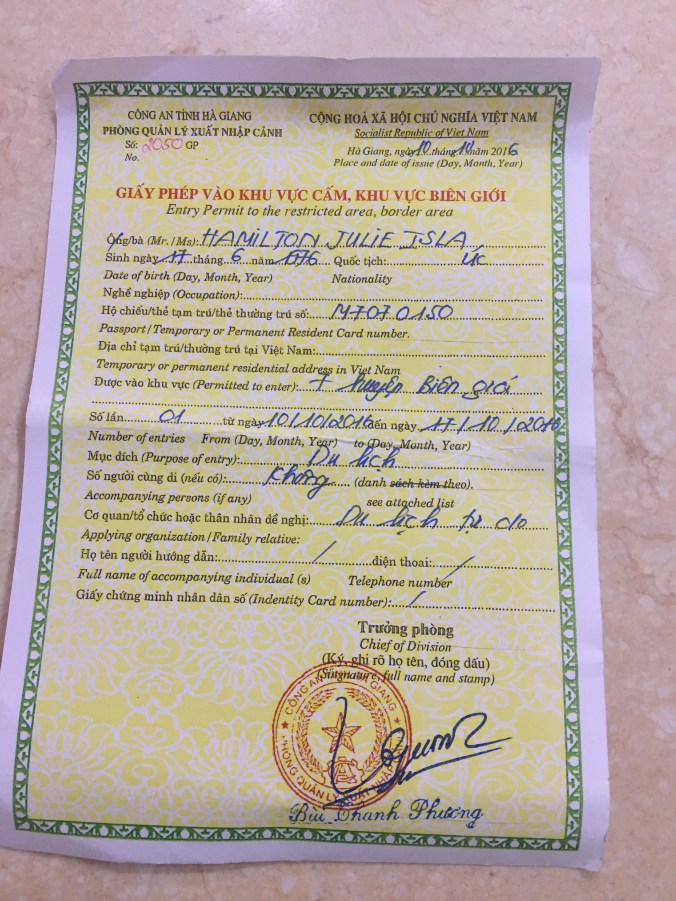 CÔNG AN TỈNH HÀ GIANG
PHÒNG QUẢN LÝ XUẤT NHẬP CẢNH
Số: 2050 GP
No.
CỘNG HOÀ XÃ HỘI CHỦ NGHĨA VIỆT NAM
Socialist Republic of Viet Nam
Hà Giang, ngày 10 tháng 10 năm 2016
Place and date of issue (Day, Month, Year)
GIẤY PHÉP VÀO KHU VỰC CẤM, KHU VỰC BIÊN GIỚI
Entry Permit to the restricted area, border area
Ông/bà (Mr. / Ms): HAMILTON JULIE ISLA
Sinh ngày 17 tháng 6 năm 1976 Quốc tịch: ÚC
Date of birth (Day, Month, Year) Nationality
Nghề nghiệp (Occupation):
Hộ chiếu/thẻ tạm trú/thẻ thường trú số: M7070150
Passport/Temporary or Permanent Resident Card number.
Địa chỉ tạm trú/thường trú tại Việt Nam:
Temporary or permanent residential address in Viet Nam
Được vào khu vực (Permitted to enter): 7 huyện Biên giới
Số lần 01 từ ngày 10/10/2016 đến ngày 17/10/2016
Number of entries From (Day, Month, Year) to (Day, Month, Year)
Mục đích (Purpose of entry): Du lịch
Số người cùng đi (nếu có): không (danh sách kèm theo).
Accompanying persons (if any) see attached list
Cơ quan/tổ chức hoặc thân nhân đề nghị: Du lịch tự do
Applying organization / Family relative:
Họ tên người hướng dẫn: / điện thoại: /
Full name of accompanying individual (s) Telephone number
Giấy chứng minh nhân dân số (Indentity Card number): /
Trưởng phòng
Chief of Division
(Ký, ghi rõ họ tên, đóng dấu)
(Singnature, full name and stamp)
CÔNG AN TỈNH HÀ GIANG
PHÒNG QUẢN LÝ XUẤT NHẬP
Bùi Thanh Phương